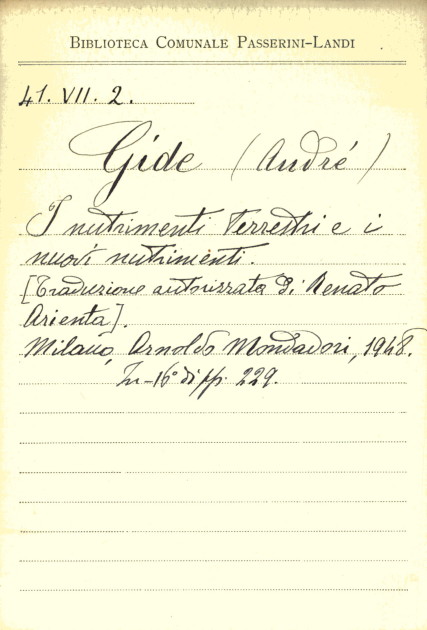 BIBLIOTECA COMUNALE PASSERINI-LANDI
41. VII. 2.
Gide (André)
I nutrimenti terrestri e i
nuovi nutrimenti.
[Traduzione autorizzata di Renato
Arienta].
Milano, Arnoldo Mondadori, 1948.
In-16° di pp. 229.